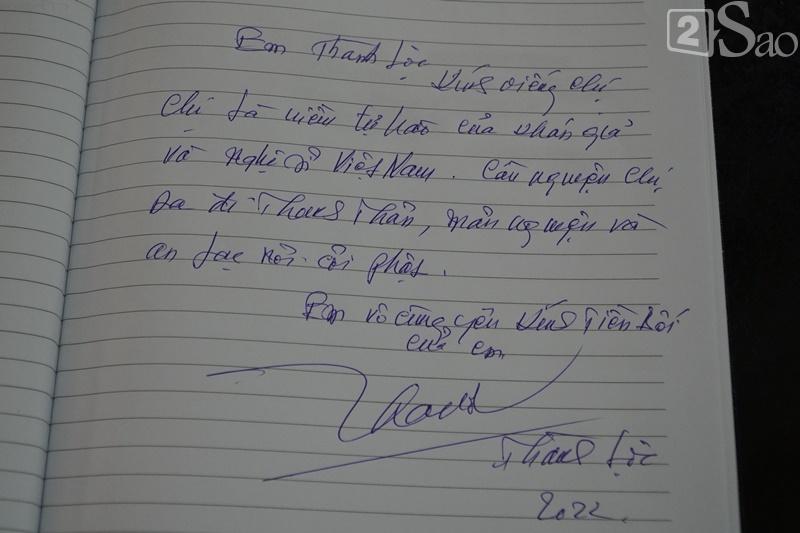 2Sao
Em Thành Lộc
Kính viếng chị
Chị là niềm tự hào của khán giả
và nghệ sĩ Việt Nam. Cầu nguyện chị
ra đi Thanh Thản, mãn nguyện và
an lạc nơi cõi phật.
Em vô cùng yêu kính Tiền bối
của em
Thành Lộc
2022.